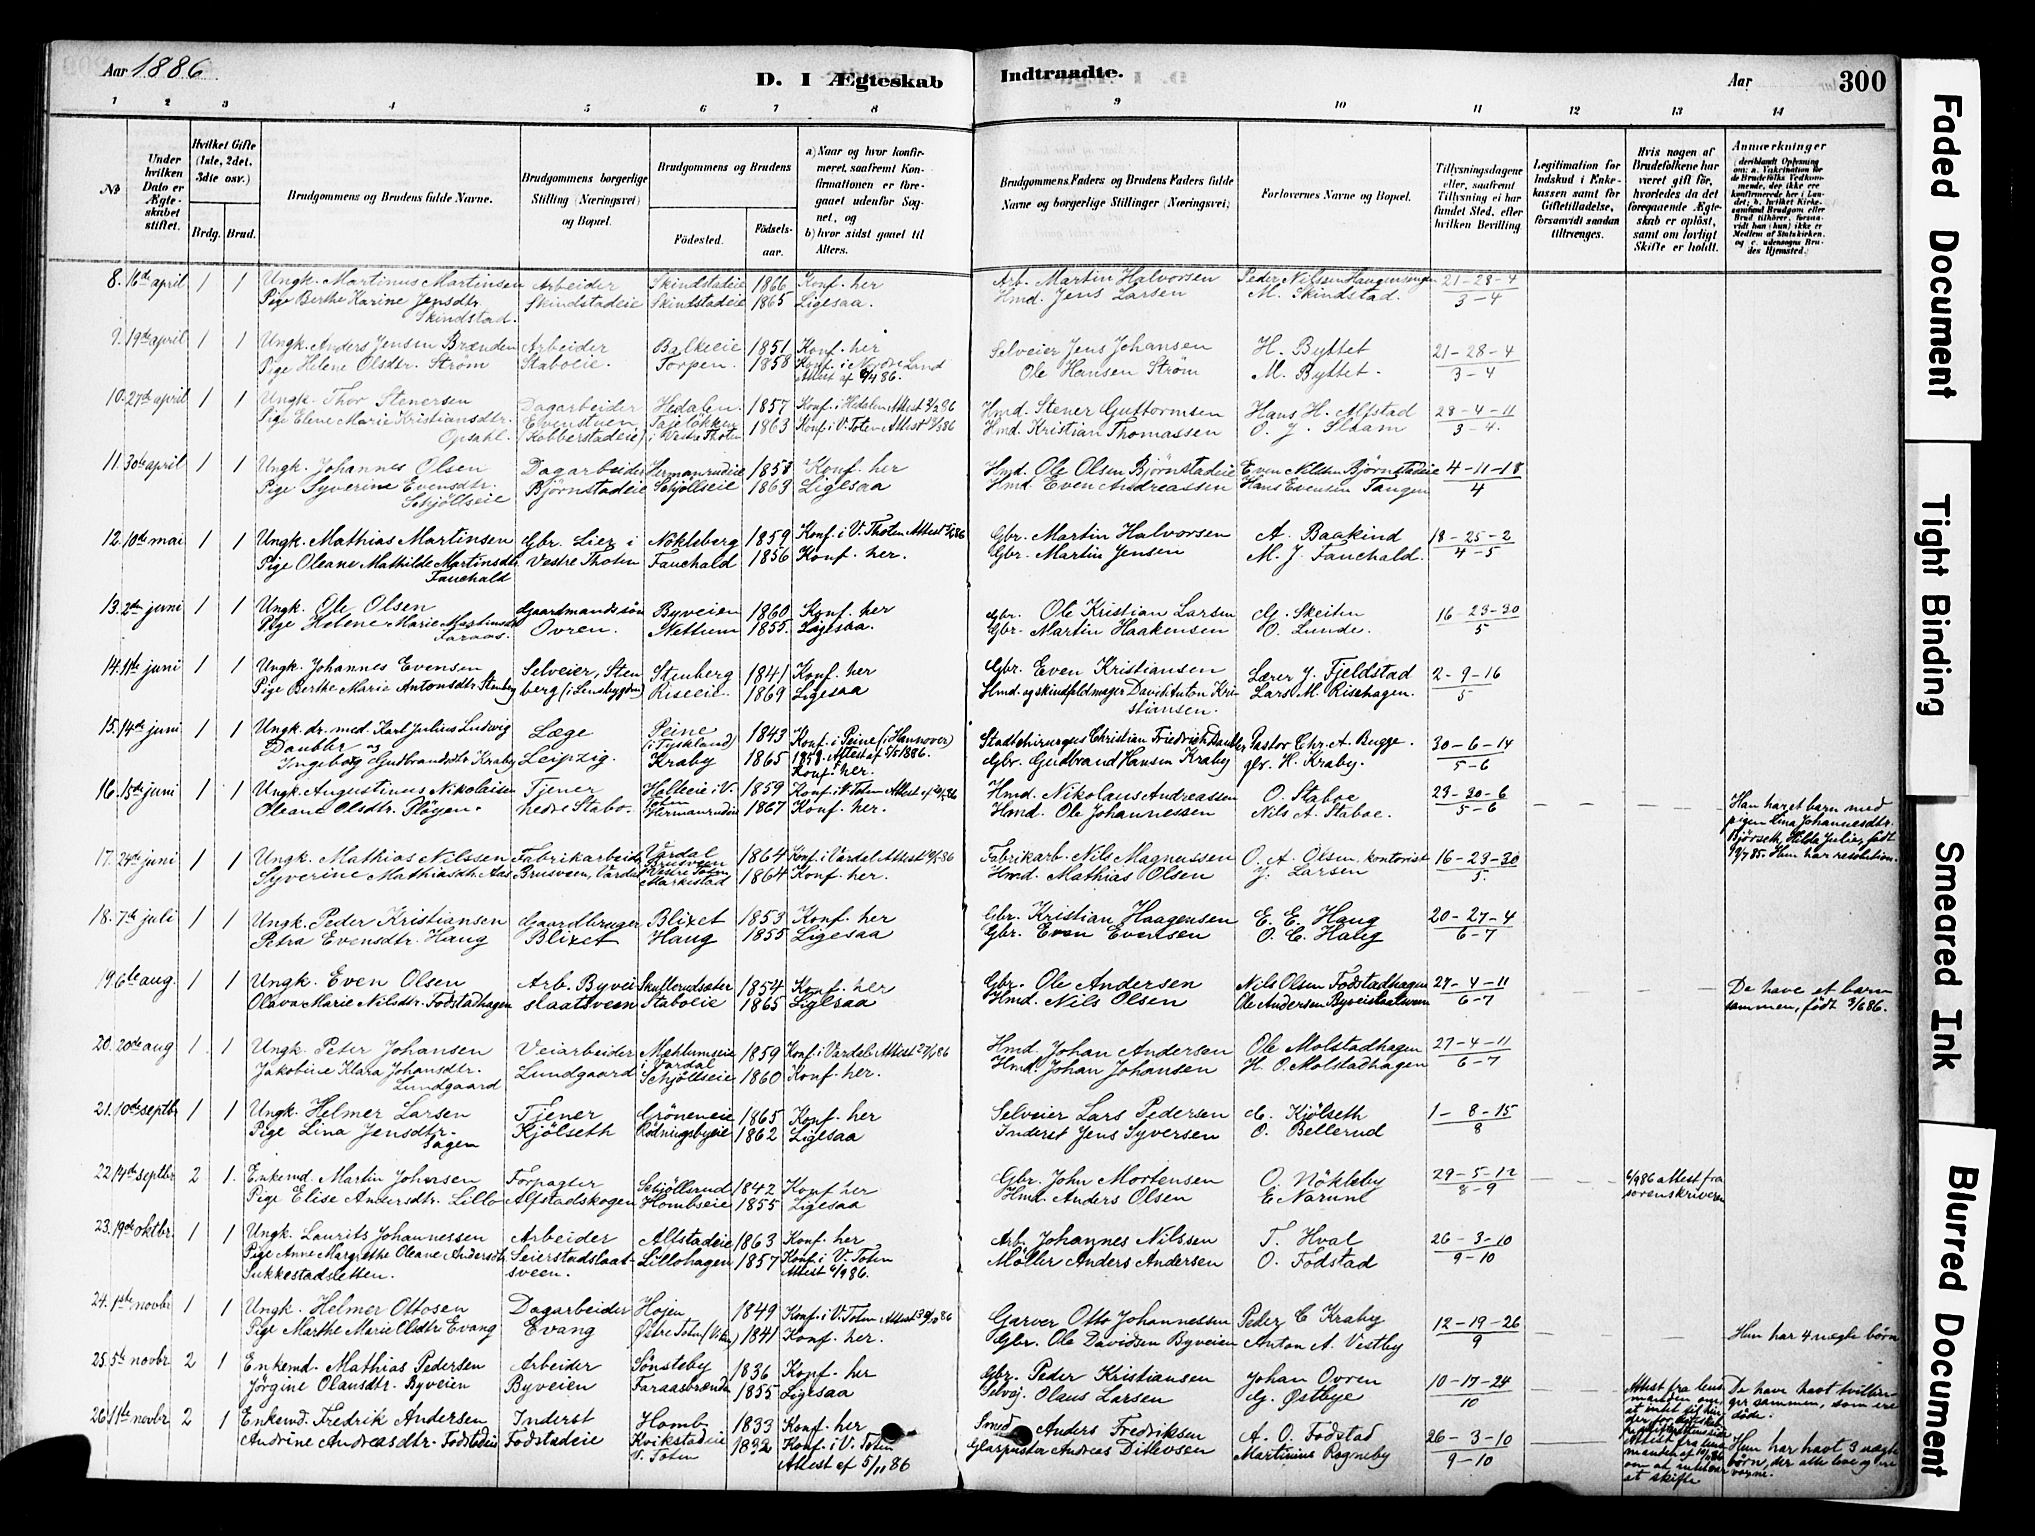 Aar 1886
D. I Ægteskab Indtraadte.
Aar
300
1 2 3 4 5 6 7 8 9 10 11 12 13 14
No
Under hvilken Dato er Ægteskabet stiftet.
Hvilket Gifte (1ste, 2det, 3die osv.)
Brdg. Brud.
Brudgommens og Brudens fulde Navne.
Brudgommens borgerlige Stilling (Næringsvei) og Bopæl.
Brudgommens og Brudens
Fødested. Fødsels-aar.
a) Naar og hvor konfirmeret, saafremt Konfirmationen er foregaaet udenfor Sognet, og
b) hvor sidst gaaet til Alters.
Brudgommens Faders og Brudens Faders fulde Navne og borgerlige Stillinger (Næringsvei)
Forlovernes Navne og Bopæl.
Tillysningsdagene eller, saafremt Tillysning ei har fundet Sted, efter hvilken Bevilling.
Legitimation for Indskud i Enkekassen samt for Giftetilladelse, forsaavidt saadan tiltrænges.
Hvis nogen af Brudefolkene har været gift før, hvorledes da det foregaaende Ægteskab er opløst, samt om lovligt Skifte er holdt.
Anmærkninger
8. 16de april 1 1 Ungk. Martinus Martinsen Arbeider Skindstadeie 1866 Konf. her Arb. Martin Halvorsen Peder Nilssen Haugensengen 21-28-4
Pige Berthe Karine Jensdtr. Skindstadeie Skindstadeie 1865 Ligesaa. Hmd. Jens Larsen M. Skindstad. 3-4
Skindstad.
9. 19de april 1 1 Ungk. Anders Jensen Brænden Arbeider Balkeeie 1851 Konf. her Selveier Jens Johansen H. Byttet 21-28-4
Pige Helene Olsdtr. Strøm Staboeie. Torpen. 1858 Konf. i Nordre Land Ole Hansen Strøm M. Byttet. 3-4
Attest af 6/4 86.
10. 27de april 1 1 Ungk. Thor Stenersen Dagarbeider Hedalen. 1857 Konf. i Hedalen Attest 3/2 86 Hmd. Stener Guttormsen Hans H. Alfstad 28-4-11
Pige Elene Marie Kristiansdtr. 1863 Konf. i V. Toten Attest Hmd. Kristian Thomassen O. J. 3-4.
Opsahl. Kobberstadeie i Vestre Thoten
11. 30de april 1 1 Ungk. Johannes Olsen Dagarbeider Hermanrudeie 1858 Konf. her Hmd. Ole Olsen Bjørnstadeie Even Nilssen Bjørnstadeie 4-11-18
Pige Syverine Evensdtr. Bjørnstadeie Schjøllseie 1863 Ligesaa Hmd. Even Andreassen Hans Evensen Tangen 4
Schjøllseie
12. 10de mai 1 1 Ungk. Mathias Martinsen Gbr. Lier i Nøkleberg 1859 Konf. i V. Thoten Attest Gbr. Martin Halvorsen A. Baakind 18-25-2
Pige Oleane Mathilde Martinsdtr. Vestre Thoten Fauchald 1856 Konf. her. Gbr. Martin Jensen M. J. Fauchald. 4-5
Fauchald
13. 2den juni 1 1 Ungk. Ole Olsen Gaardmandssøn Byveien 1860 Konf. her Gbr. Ole Kristian Larsen G. Skeiten 16-23-30
Pige Helene Marie Martinsdtr. Ovren. Nettum 1855. Ligesaa. Gbr. Martin Haakensen O. Lunde. 5
14. 11te juni 1 1 Ungk. Johannes Evensen Selveier, Sten Stenberg 1841 Konf. her Gbr. Even Kristiansen Lærer J. Fjeldstad 2-9-16
Pige Berthe Marie Antonsdtr. Stenberg berg (i Lensbygden) Riseeie. 1869 Ligesaa Hmd. og skindfeldmager David Anton Kri- Lars M. Risehagen. 5
stiansen.
15. 14de juni 1 1 Ungk. dr. med. Karl Julius Ludwig Læge Peine 1843 Konf. i Peine (i Hannover) Stadtchirurgus Christian Friedrich Daubler Pastor Chr. A. Bugge. 30-6-14
Daubler og Leipzig. (i Tyskland) 1858. Attest af 5/5 1886. 5-6
Ingeborg Gudbrandsdtr. Kraby Kraby 1865 Konf. her. Gbr. Gudbrand Hansen Kraby gbr. H. Kraby.
16. 15de juni 1 1 Ungk. Augustinus Nikolaisen Tjener Halleeie i V. 1859 Konf. i V. Toten Attest af Hmd. Nikolaus Andreassen O. Staboe 23-30-6
Oleane Olsdtr. Pløgen. nedre Stabo. Toten Hermanrudeie 1867 Konf. her. Hmd. Ole Johannessen Nils A. Staboe. 5-6
Han har et barn med pigen Lina Johannesdtr. Bjørseth, Hilda Julie, født 19/7 85. Hun har resolution.
17. 24de juni 1 1 Ungk. Mathias Nilssen Fabrikarbeider Vardal Brusveen 1864 Konf. i Vardal Attest Fabrikarb. Nils Magnussen O. A. Olsen, kontorist 16-23-30
Syverine Mathiasdtr. Aas Brusveen, Vardal Vestre Toten Markestad 1864 Konf. her. Hmd. Mathias Olsen J. Larsen 5.
18. 7de juli 1 1 Ungk. Peder Kristiansen Gaardbruger Blixet 1853 Konf. her Gbr. Kristian Haagensen E. E. Haug 20-27-4
Petra Evensdtr. Haug Blixet Haug 1855 Ligesaa Gbr. Even Evensen O. C. Haug 6-7
19. 6te aug. 1 1 Ungk. Even Olsen Arb. Byvei Skuflerudsæter 1854 Konf. her Gbr. Ole Andersen Nils Olsen Fodstadhagen 27-4-11
Olava Marie Nilsdtr. Fodstadhagen slaatsveen Staboeie 1865 Ligesaa Hmd. Nils Olsen Ole Andersen Byveislaatsveen 6-7
De have et barn sammen, født 3/6 86.
20. 20de aug 1 1 Ungk. Peter Johansen Veiarbeider Mæhlumseie 1859 Konf. i Vardal Attest Hmd. Johan Andersen Ole Molstadhagen 27-4-11
Jakobine Klara Johansdtr. Lundgaard i Vardal Schjøllseie 1860 Konf. her. Hmd. Johan Johansen H. O. Molstadhagen 6-7
Lundgaard
21. 10de septbr 1 1 Ungk. Helmer Larsen Tjener Grøneneie 1865 Konf. her Selveier Lars Pedersen C. Kjølseth 1-8-15
Pige Lina Jensdtr. Kjølseth Rødningsbyeie 1862 Ligesaa Inderst Jens Syversen O. Bellerud 8
Sagen
22. 14de septbr 2 1. Enkemd. Martin Johnsen Forpagter Schjøllsrud 1842 Konf her Gbr. John Mortensen O. Nökleby 29-5-12
Pige Elise Andersdtr. Lillo Alfstadskogen Hombseie 1855 Ligesaa Hmd. Anders Olsen E. Narum 8-9
6/9 86 attest fra sorenskriveren
23. 19de oktbr. 1 1 Ungk. Laurits Johannessen Arbeider Alfstadeie 1863 Konf. her Arb. Johannes Nilssen T. Hval 26-3-10
Pige Anne Margrethe Oleane Andersdtr. Seierstadslaat- Lillohagen 1857 Konf. i V. Toten Møller Anders Andersen O. Fodstad 9-10
Sukkestadsletten. sveen. Attest 6/9 86.
24. 1ste novbr 1 1 Ungk. Helmer Ottosen Dagarbeider Højen 1849 Konf. i V. Toten Attest Garver Otto Johannessen Peder C Kraby 12-19-26
Pige Marthe Marie Olsdtr Evang Evang Østre Toten 1841 Konf. her. Gbr. Ole Davidsen Byveien Anton A. Vestby 9
Hun har 4 uægte børn
25. 5te novbr 2 1 Enkemd. Mathias Pedersen Arbeider Sønsteby 1836 Konf. her Gbr. Peder Kristiansen Johan Ovren 10-17-24
Jörgine Olausdtr. Byveien Byveien Faraasbrænden 1855 Ligesaa Selvej. Olaus Larsen G. Østbye 10
De have havt tvillinger sammen, som ere døde.
26. 11te novbr 2 1 Enkemd. Fredrik Andersen Inderst Homb 1833 Konf. her Smed Anders Fredriksen A. O. Fodstad 26-3-10
Andrine Andreasdtr. Fodstadeie Fodstadeie Kvikstadeie 1832 Konf. i V. Toten Glasmester Andreas Ditlevsen Martinius Rogneby 9-10
V. Toten Attest af 5/11 86
Hun har havt 3 uægte børn, der alle leve og ere voxne.
Faded Document
Tight Binding
Smeared Ink
Blurred Document